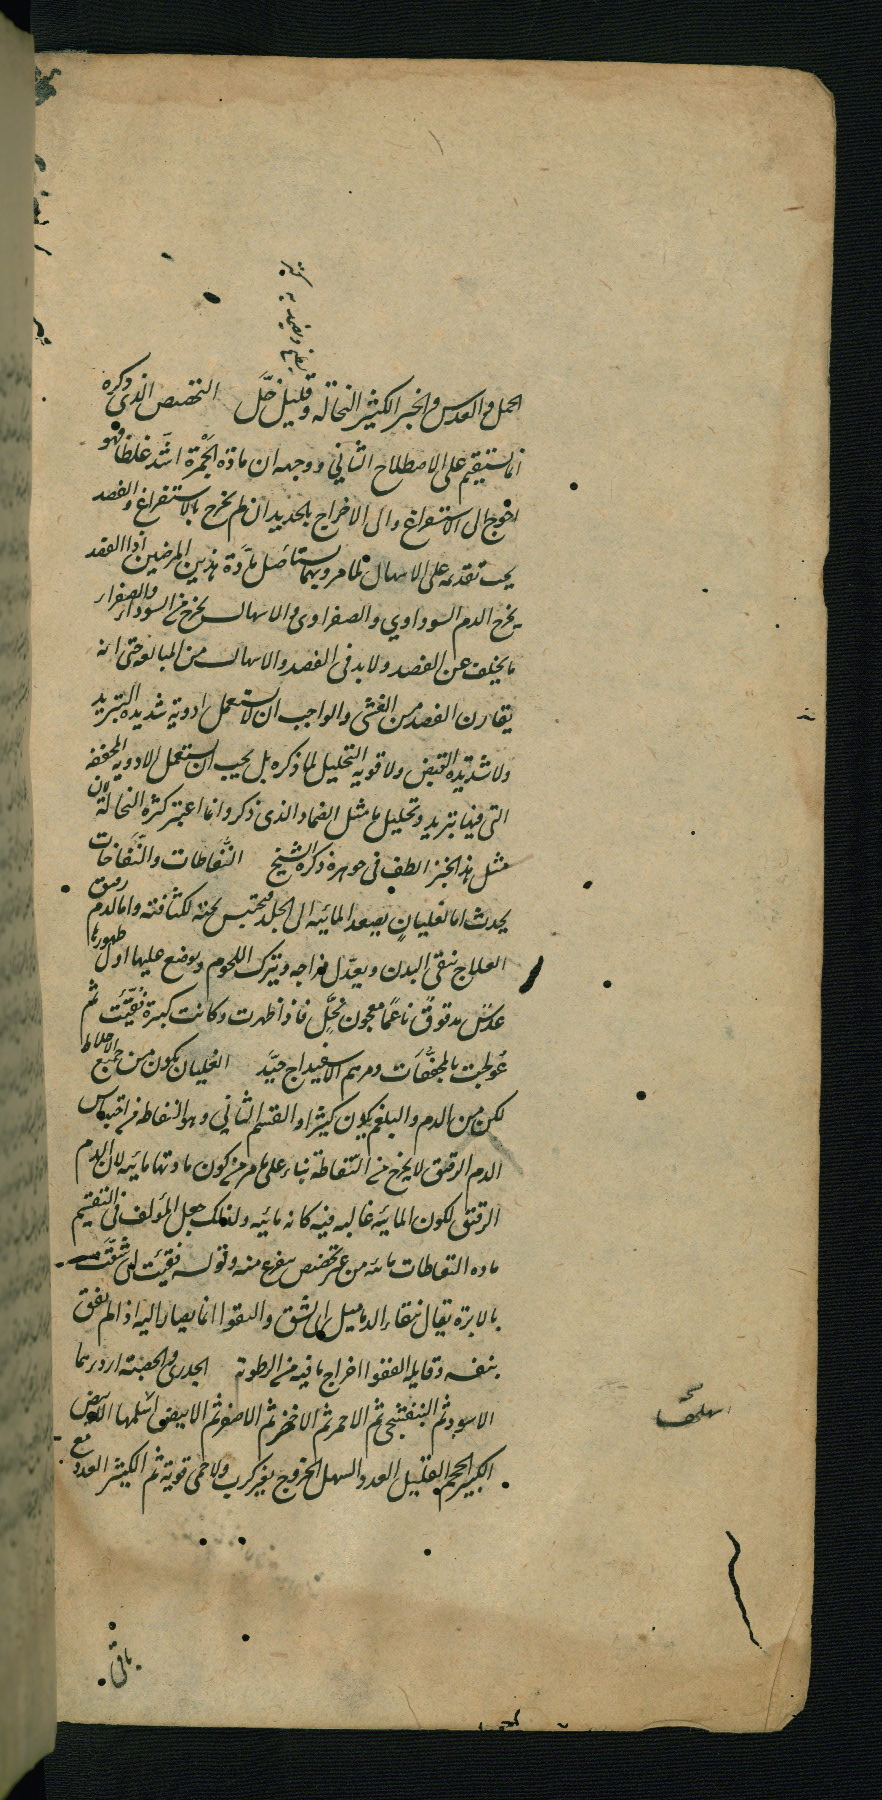 الحمل والعدس والخبز الكثير النخالة وقليل خل التخصيص الذي ذكره
انما يستقيم على الاصطلاح الثاني ووجهه ان مادة الجمرة اشد غلظا فهو
احوج الى الاستفراغ والى الاخراج بالحديد ان لم يخرج بالاستفراغ والفصد
يجب تقدمه على الاسهال لما مر وبهما يستاصل مادة هذين المرضين اذ الفصد
يخرج الدم السوداوي والصفراوي والاسهال يخرج من السوداء والصفراء
ما يتخلف عن الفصد ولا بد في الفصد والاسهال من المبالغة حتى انه
يقارن الفصد من الغشى والواجب ان لا يستعمل ادوية شديدة التبريد
ولا شديدة القبض ولا قوية التحليل لما ذكره بل يجب ان يستعمل الادوية المجففة
التي فيها تبريد وتحليل ما مثل الضماد الذي ذكر وانما اعتبر كثرة النخالة لان
مثل هذا الخبز الطف في جوهره ذكره الشيخ النفاطات والنفاخات
يحدث اما لغليان يصعد المائية الى الجلد فيحتبس تحته لكثافته واما لدم رقيق
العلاج ينقى البدن ويعدل مزاجه ويترك اللحوم ويوضع عليها اول ظهورها
عدس مدقوق ناعما معجون بخل فاذا ظهرت وكانت كبيرة فقئت ثم
عولجت بالمجففات ومرهم الاسفيداج جيد الغليان يكون من جميع الاخلاط
لكن من الدم والبلغم يكون كثيرا والقسم الثاني وهو النفاطة من احتباس
الدم الرقيق لا يخرج من النفاطة بناء على ما مر من كون مادتها مائية لان الدم
الرقيق لكون المائية غالبة فيه كانه مائية ولذلك جعل المؤلف في التقسيم
مادة النفاطات مائية من غير تخصيص بنوع منه وقوله فقئت اى شقت
بالابرة يقال تفقاء الدماميل اى انشق والفقوا انما يصار اليه اذا لم يفق
بنفسه وفايدة الفقوا اخراج ما فيه من الرطوبة الجدري والحصبة اردءها
الاسود ثم البنفسجي ثم الاحمر ثم الاخضر ثم الاصفر ثم الابيض اسلمها الابيض
الكبير الحجم القليل العدد السهل الخروج بغير كرب ولا حمى قوية ثم الكثير العدد مع
باقى